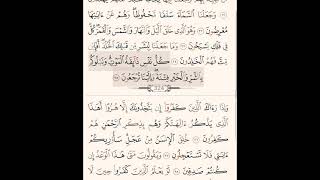 وَجَعَلْنَا ٱلسَّمَآءَ سَقْفًا مَّحْفُوظًا ۖ وَهُمْ عَنْ ءَايَٰتِهَا
مُعْرِضُونَ ٣٢ وَهُوَ ٱلَّذِى خَلَقَ ٱلَّيْلَ وَٱلنَّهَارَ وَٱلشَّمْسَ وَٱلْقَمَرَ ۖ كُلٌّ
فِى فَلَكٍ يَسْبَحُونَ ٣٣ وَمَا جَعَلْنَا لِبَشَرٍ مِّن قَبْلِكَ ٱلْخُلْدَ ۖ أَفَإِي۟ن
مِّتَّ فَهُمُ ٱلْخَٰلِدُونَ ٣٤ كُلُّ نَفْسٍ ذَآئِقَةُ ٱلْمَوْتِ ۗ وَنَبْلُوكُم
بِٱلشَّرِّ وَٱلْخَيْرِ فِتْنَةً ۖ وَإِلَيْنَا تُرْجَعُونَ ٣٥
324
وَإِذَا رَءَاكَ ٱلَّذِينَ كَفَرُوٓا۟ إِن يَتَّخِذُونَكَ إِلَّا هُزُوًا أَهَٰذَا
ٱلَّذِى يَذْكُرُ ءَالِهَتَكُمْ وَهُم بِذِكْرِ ٱلرَّحْمَٰنِ هُمْ
كَٰفِرُونَ ٣٦ خُلِقَ ٱلْإِنسَٰنُ مِنْ عَجَلٍ ۚ سَأُو۟رِيكُمْ
ءَايَٰتِى فَلَا تَسْتَعْجِلُونِ ٣٧ وَيَقُولُونَ مَتَىٰ هَٰذَا ٱلْوَعْدُ إِن
كُنتُمْ صَٰدِقِينَ ٣٨ لَوْ يَعْلَمُ ٱلَّذِينَ كَفَرُوا۟ حِينَ لَا